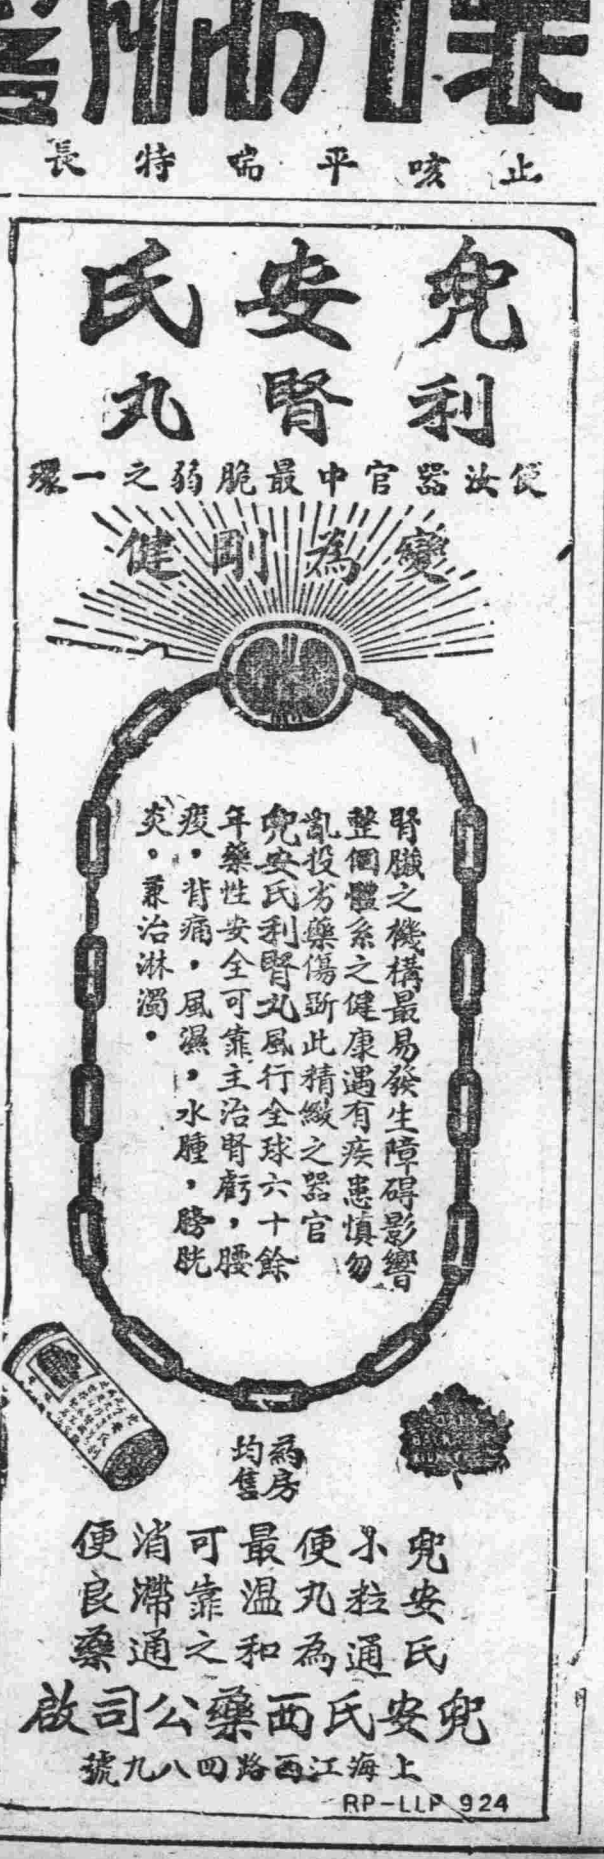 止咳平喘特長
兜安氏
利腎丸
使汝器官中最脆弱之一環
變為剛健
腎臟之機構最易發生障碍影響
整個體系之健康遇有疾患慎勿
亂投劣藥傷斲此精緻之器官
兜安氏利腎丸風行全球六十餘
年藥性安全可靠主治腎虧，腰
痠，背痛，風濕，水腫，膀胱
炎。兼治淋濁。
藥房
均售
兜安氏
小粒通
便丸為
最溫和
可靠之
消滯通
便良藥
兜安氏西藥公司啟
上海江西路四八九號
RP-LLP 924